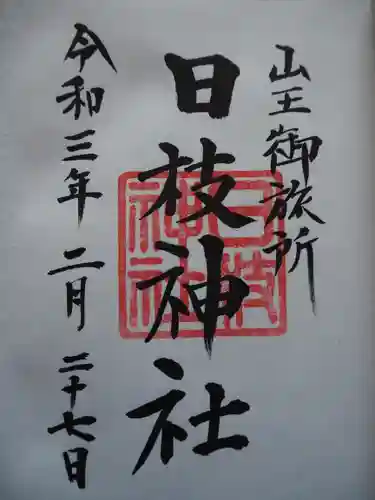 山王御旅所
日枝神社
日枝
神社
令和三年 二月 二十七日